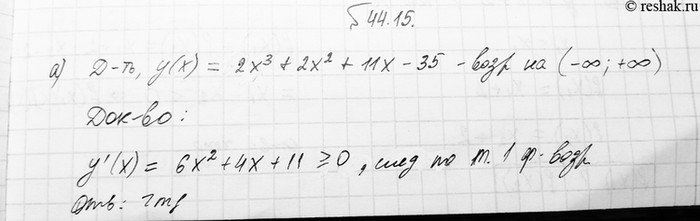 © reshak.ru
§ 44.15.
а) Д-ть, y(x) = 2x³ + 2x² + 11x - 35 - возр на (-∞; +∞)
Док-во:
y'(x) = 6x² + 4x + 11 ≥ 0, след по т. 1 ф. возр
Отв: чтд